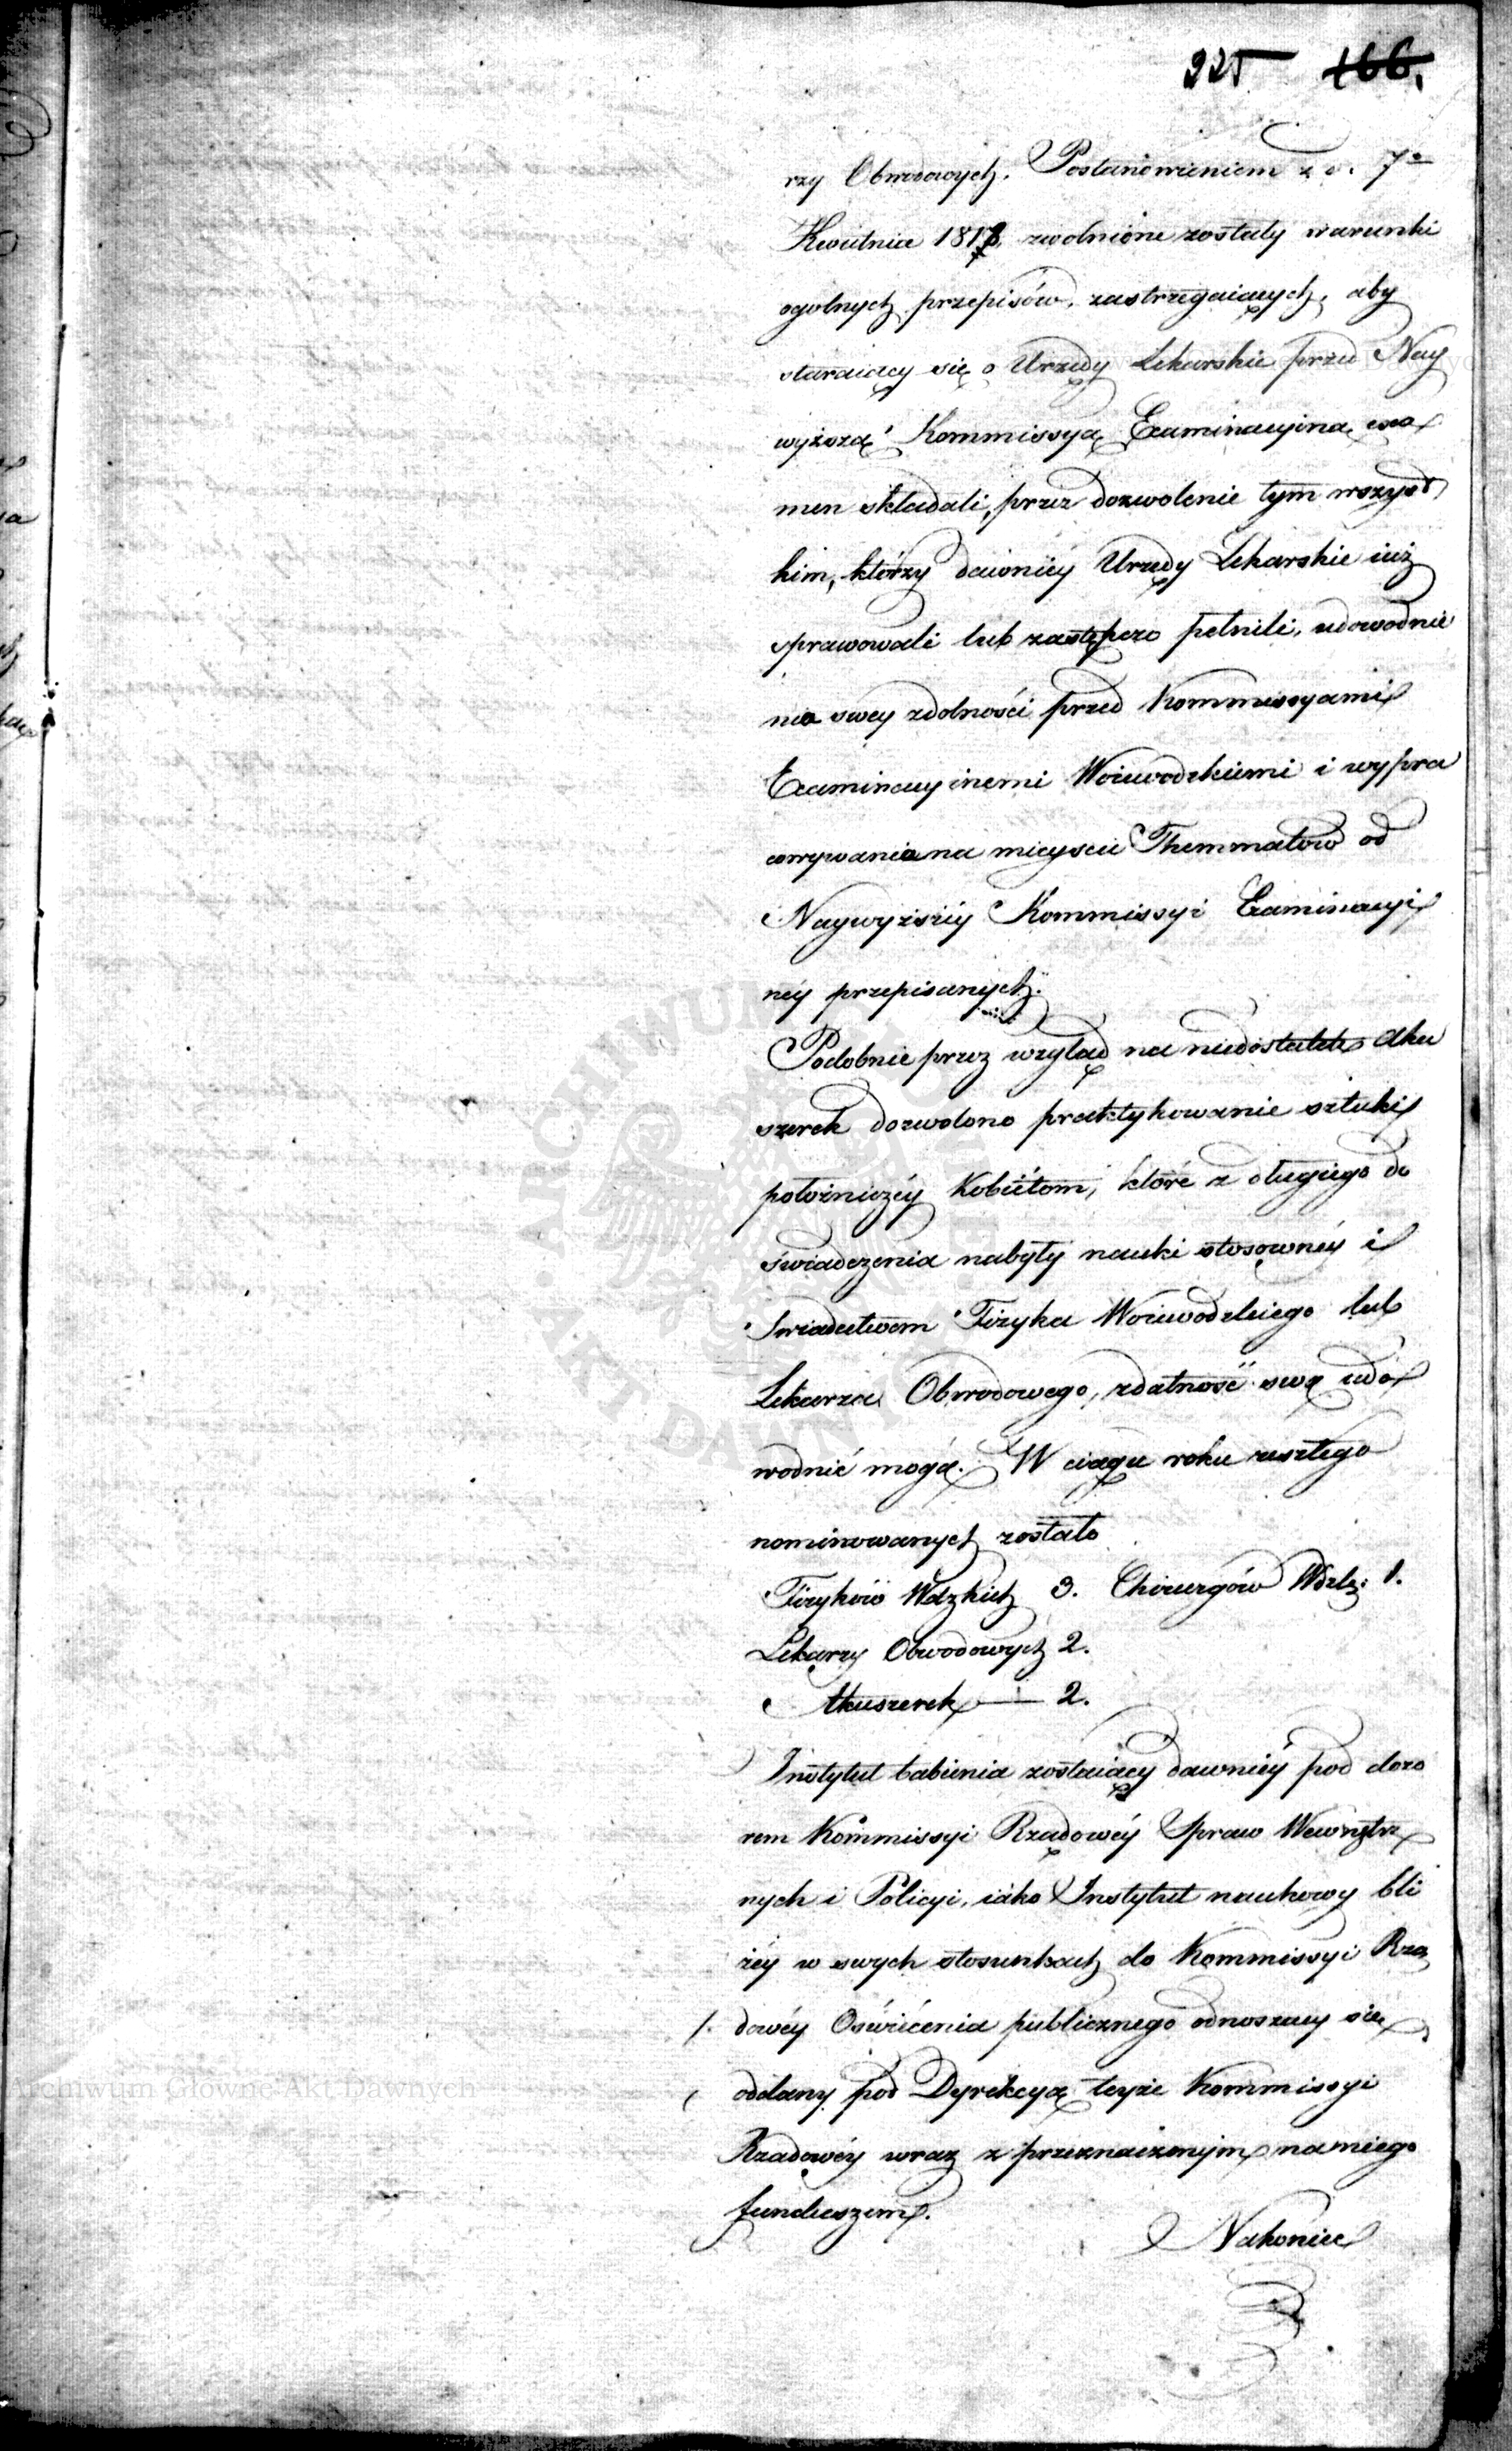 225 166.
rzy Obwodowych. Postanowieniem z d. 7º
Kwietnia 1818 zwolnione zostały warunki
ogolnych przepisów, zastrzegaiących, aby
staraiący się o Urzędy Lekarskie przed Nay
wyższą Kommissyą Examinacyiną exa
men składali, przez dozwolenie tym wszyst
kim, którzy dawniéy Urzędy Lekarskie iuż
sprawowali lub zastępczo pełnili, udowodnie
nia swey zdolności przed Kommissyami
Examinacyinemi Woiewodzkiemi i wypra
cowywania na mieyscu Themmatów od
Naywyższéy Kommissyi Examinacyi
néy przepisanych.
Podobnie przez wzgląd na niedostatek Aku
szerek dozwolono praktykowanie sztuki
położniczéy Kobiétom, które z długiego do
świadczenia nabyły nauki stosownéy i
Swiadectwem Fizyka Woiewodzkiego lub
Lekarza Obwodowego, zdatność swą udo
wodnić mogą. W ciągu roku zeszłego
nominowanych zostało
Fizyków Wdzkich 3. Chirurgów Wdzk: 1.
Lekarzy Obwodowych 2.
Akuszerek — 2.
Instytut babienia zostaiący dawniéy pod dozo
rem Kommissyi Rządowéy Spraw Wewnętrz
nych i Policyi, iako Instytut naukowy bli
żéy w swych stosunkach do Kommissyi Rzą
/. dowéy Oświécenia publicznego odnoszący się,
oddany pod Dyrekcyą teyże Kommissyi
Rządowéy wraz z przeznaczonym na niego
funduszem.
Nakoniec
Archiwum Główne Akt Dawnych